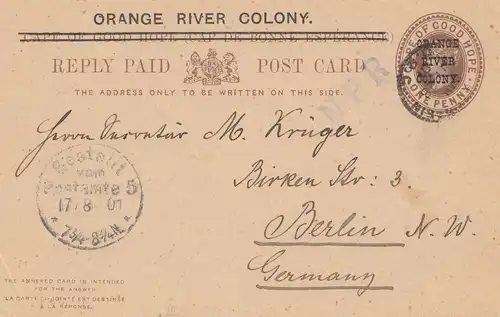 ORANGE RIVER COLONY.
CAPE OF GOOD HOPE (CAP DE BONNE ESPERANCE)
REPLY PAID POST CARD
THE ADDRESS ONLY TO BE WRITTEN ON THIS SIDE.
CAPE OF GOOD HOPE.
ORANGE
RIVER
COLONY.
ONE PENNY
Herrn Secretär M. Krüger
Birken Str: 3.
Berlin N. W.
Germany
Bestellt
vom
Postamte 5
17/8 01
7¾-8¾N
THE ANNEXED CARD IS INTENDED
FOR THE ANSWER.
LA CARTE CI-JOINTE EST DESTINÉE
À LA RÉPONSE.